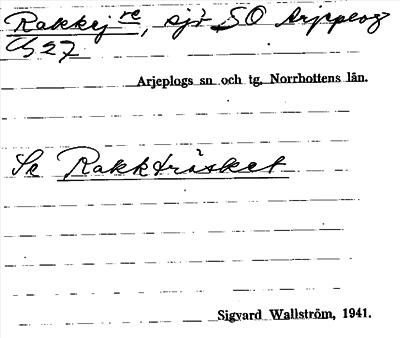 Rakkejre, sjö SO Arjeplog
G27
Arjeplogs sn och tg, Norrbottens län.
Se Rakkträsket
Sigvard Wallström, 1941.